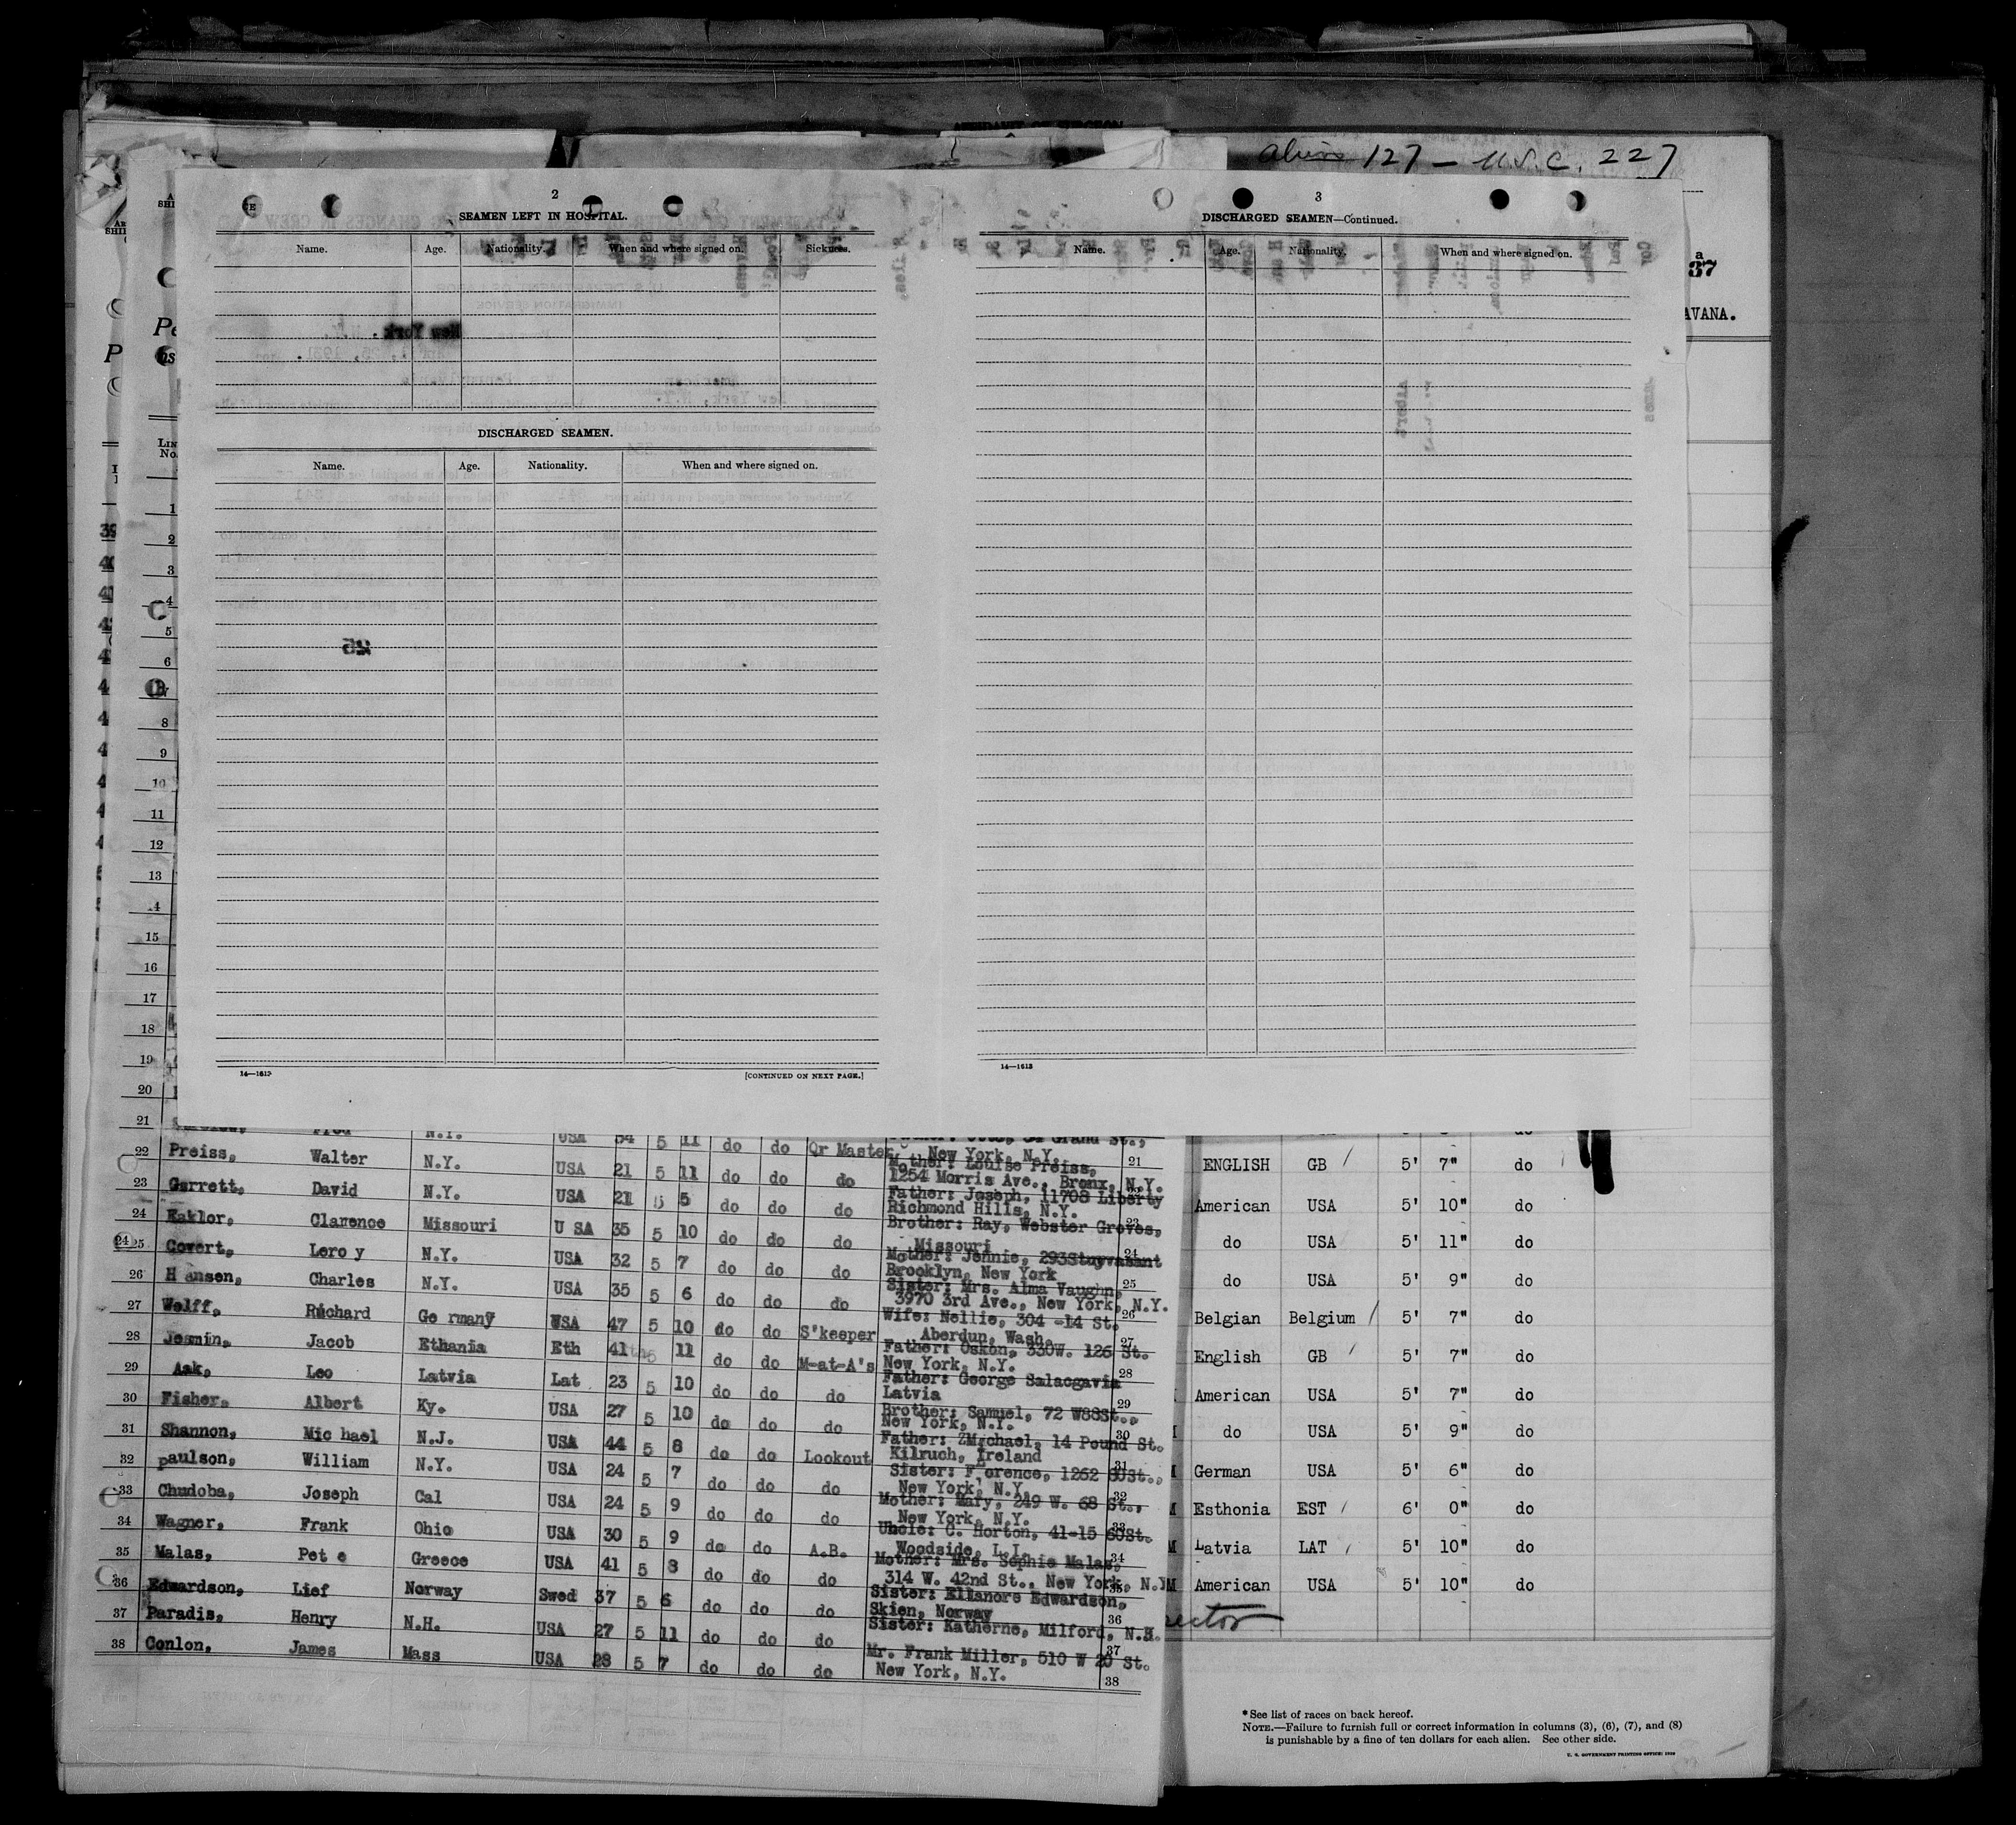 Alien 127 - U.S.C. 227
2
SEAMEN LEFT IN HOSPITAL.
Name. Age. Nationality. When and where signed on. Sickness.
DISCHARGED SEAMEN.
Name. Age. Nationality. When and where signed on.
14—1613 [CONTINUED ON NEXT PAGE.]
3
DISCHARGED SEAMEN—Continued.
Name. Age. Nationality. When and where signed on.
14—1613
a
37
AVANA.
LIN
No.
1
2
3
4
5
6
8
9
10
11
12
13
14
15
16
17
18
19
20
21
N.Y. USA 34 5 11 do do Qr Master
New York, N.Y. 21
22 Preiss, Walter N.Y. USA 21 5 11 do do do Mother: Louise Preiss,
1254 Morris Ave., Bronx, N.Y.
23 Garrett, David N.Y. USA 21 5 5 do do do Father: Joseph, 11708 Liberty
Richmond Hills, N.Y. 23
24 Eaklor, Clarence Missouri U SA 35 5 10 do do do Brother: Ray, Webster Groves,
Missouri 24
25 Covert, Lero y N.Y. USA 32 5 7 do do do Mother: Jennie, 293Stuyvasant
Brooklyn, New York 25
26 H ansen, Charles N.Y. USA 35 5 6 do do do Sister: Mrs. Alma Vaughn,
3970 3rd Ave., New York, N.Y. 26
27 Wolff, Richard Ge rmany USA 47 5 10 do do S'keeper Wife: Nellie, 304 -14 St.
Aberdun, Wash. 27
28 Jesmin, Jacob Ethania Eth 41 5 11 do do M-at-A's Father: Oskon, 330W. 126 St.
New York, N.Y. 28
29 Aak, Leo Latvia Lat 23 5 10 do do do Father: George Salacgavia
Latvia 29
30 Fisher, Albert Ky. USA 27 5 10 do do do Brother: Samuel, 72 W88St.,
New York, N.Y. 30
31 Shannon, Mic hael N.J. USA 44 5 8 do do Lookout Father: Michael, 14 Pound St.
Kilruch, Ireland 31
32 paulson, William N.Y. USA 24 5 7 do do do Sister: Florence, 1262 60St.,
New York, N.Y. 32
33 Chudoba, Joseph Cal USA 24 5 9 do do do Mother: Mary, 249 W. 68 St.,
New York, N.Y. 33
34 Wagner, Frank Ohio USA 30 5 9 do do A.B. Uncle: C. Horton, 41-15 60St.
Woodside, L.I. 34
35 Malas, Pet e Greece USA 41 5 8 do do do Mother: Mrs. Sophie Malas,
314 W. 42nd St., New York, N.Y 35
36 Edwardson, Lief Norway Swed 37 5 6 do do do Sister: Ellanore Edwardson,
Skien, Norway 36
37 Paradis, Henry N.H. USA 27 5 11 do do do Sister: Katherne, Milford, N.H.
37
38 Conlon, James Mass USA 28 5 7 do do do Mr. Frank Miller, 510 W 20 St.
New York, N.Y. 38
ENGLISH GB 5' 7" do
American USA 5' 10" do
do USA 5' 11" do
do USA 5' 9" do
Belgian Belgium 5' 7" do
English GB 5' 7" do
American USA 5' 7" do
do USA 5' 9" do
German USA 5' 6" do
Esthonia EST 6' 0" do
Latvia LAT 5' 10" do
American USA 5' 10" do
*See list of races on back hereof.
NOTE.—Failure to furnish full or correct information in columns (3), (6), (7), and (8)
is punishable by a fine of ten dollars for each alien. See other side.
U. S. GOVERNMENT PRINTING OFFICE: 1930